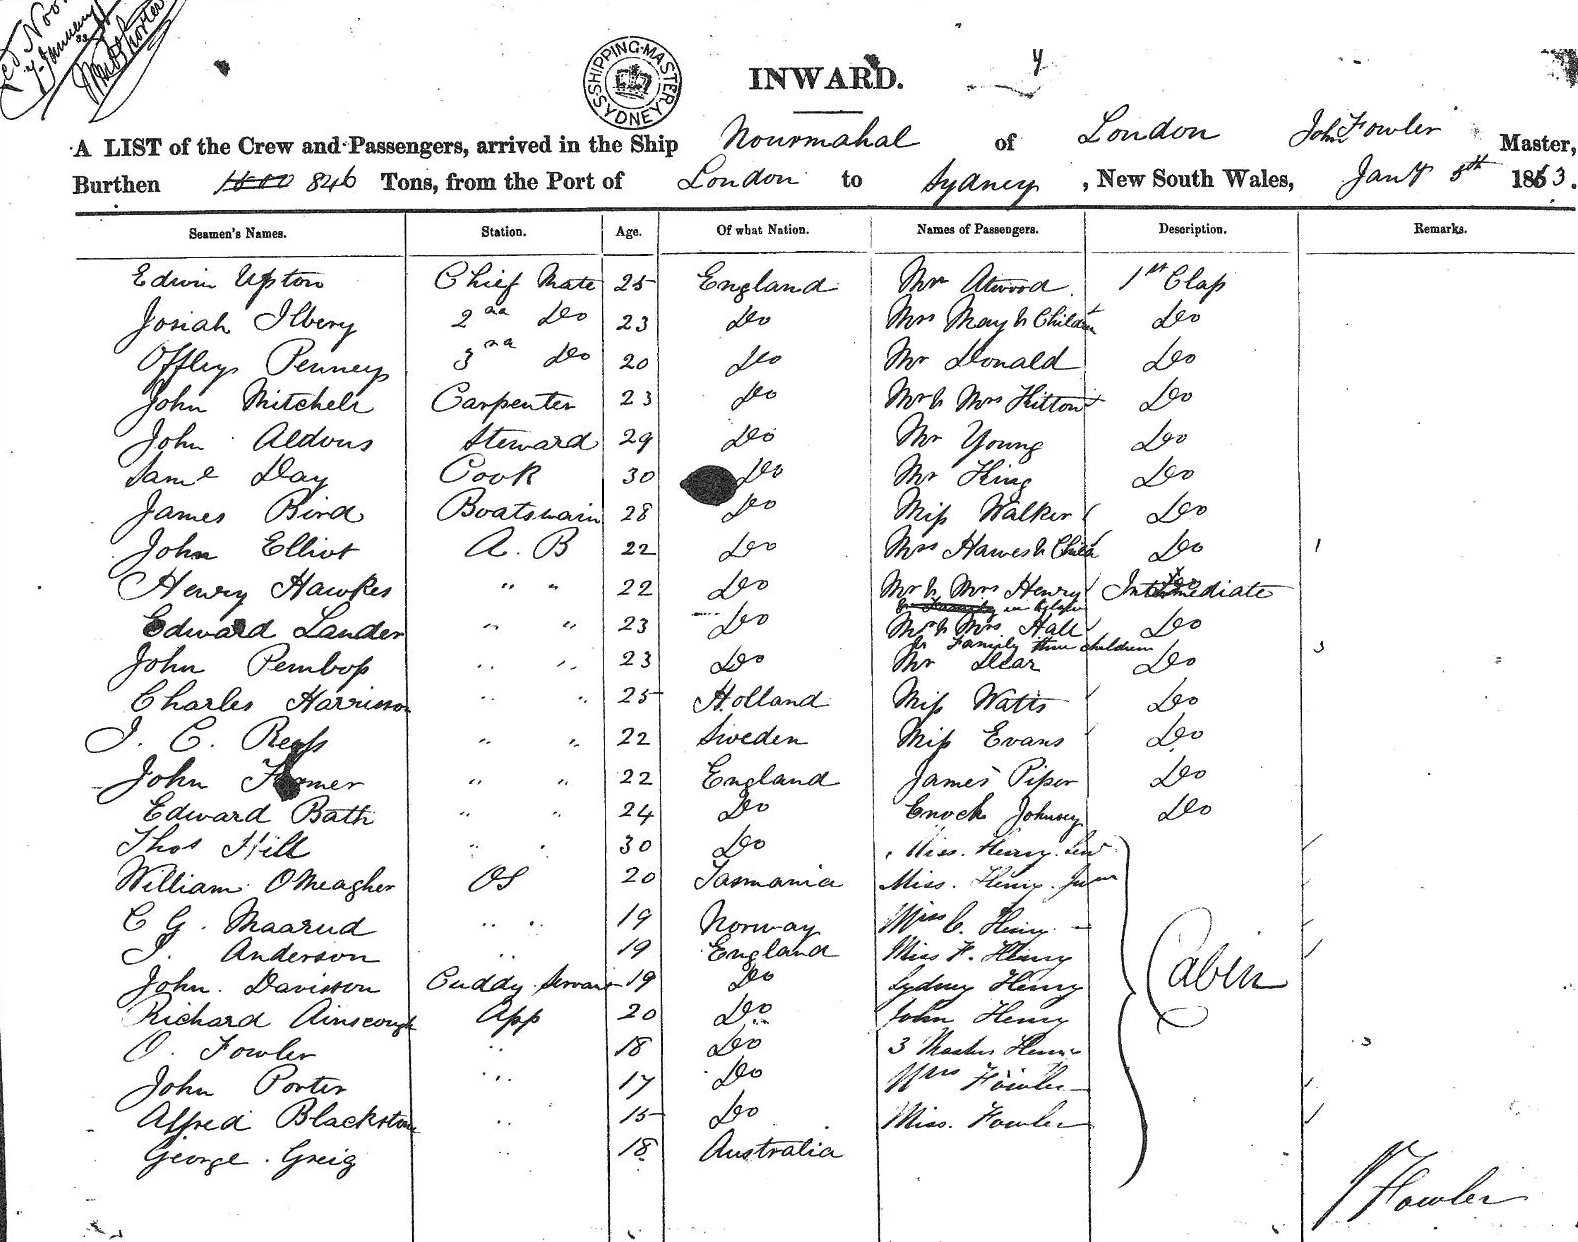 January
SHIPPING MASTER SYDNEY
INWARD.
A LIST of the Crew and Passengers, arrived in the Ship Nourmahal of London John Fowler Master,
Burthen 846 Tons, from the Port of London to Sydney, New South Wales, Jany 8th 1853.
Seamen's Names. Station. Age. Of what Nation. Names of Passengers. Description. Remarks.
Edwin Upton Chief Mate 25 England Mr Atwood 1st Class
Josiah Ilbery 2nd Do 23 Do Mrs May & Children Do
Offley Penney 3rd Do 20 Do Mr Donald Do
John Mitchell Carpenter 23 Do Mr & Mrs Hitton Do
John Aldous Steward 29 Do Mr Young Do
Saml Day Cook 30 Do Mr King Do
James Bird Boatswain 28 Do Miss Walker Do
John Elliot A. B 22 Do Mrs Hawes & Child Do 1
Henry Hawkes " " 22 Do Mr & Mrs Henry Intermediate
Edward Lander " " 23 Do Mr & Mrs Hall Do
Family three children 3
John Pemboss " " 23 Do Mr Dear Do
Charles Harrison " " 25 Holland Miss Watts Do
J. C. Reass " " 22 Sweden Miss Evans Do
John " " 22 England James Piper Do
Edward Bath " " 24 Do Enock Johnsey Do
Thos Hill " " 30 Do Miss. Henry. Senr
William OMeagher OS 20 Tasmania Miss. Henry. Junr
C G. Maarud " " 19 Norway Miss C. Henry
J. Anderson " " 19 England Miss F. Henry
John. Davisson Cuddy Servant 19 Do Sydney Henry Cabin
Richard Ainscough App 20 Do John Henry
O. Fowler " 18 Do 3 Masters Henry 3
John Porter " 17 Do Mrs Fowler
Alfred Blackstone " 15 Do Miss. Fowler
George. Greig " 18 Australia
J Fowler